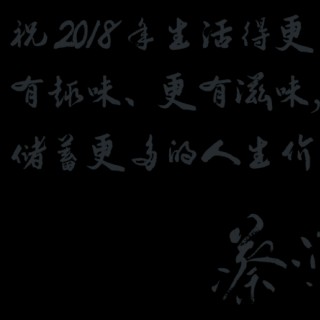 祝2018年生活得更
有趣味、更有滋味,
储蓄更多的人生价
蔡